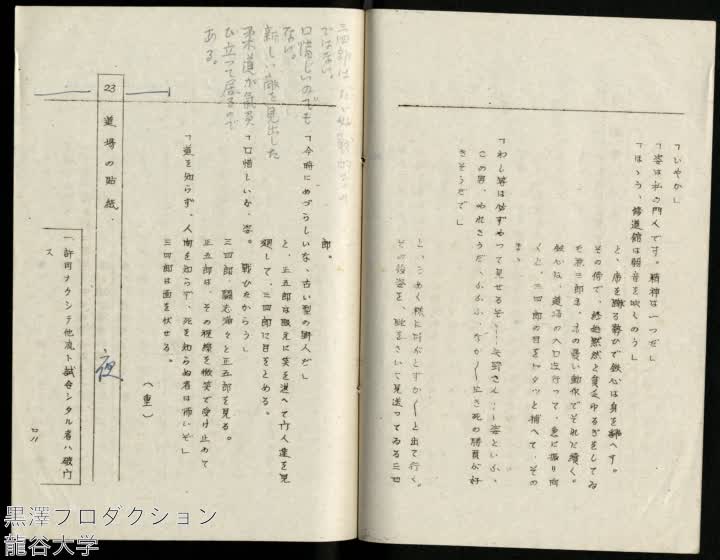 「いやか」
「姿は私の門人です。精神は一つだ」
「ほゝう、修道館は弱音を吹くのう」
と、席を蹴る勢ひで鉄心は身を翻へす。
その傍で、終始黙然と貧乏ゆるぎをしてゐ
た源三郎も、その長い動作でそれに続く。
鉄心は、道場の入口迄行って、急に振り向
くと、三四郎の目をヒタッと捕へて、その
まゝ
「わし等は必ずやって見せるぞ…矢野さん……姿といふ、
この男、やれさうだ、ふふふ、なか〳〵生き死の勝負が好
きそうだで」
と、こめく様に呼びすてゝ出て行く。
その後姿を、眦をさいて見送ってゐる三四
郎。
「今時にめづらしいな、古い型の野人だ」
と、正五郎は厳えに笑を湛へて門人達を見
廻して、三四郎に目をとめる。
「口惜しいか、姿。戦ひたからう」
三四郎、闘志満々と正五郎を見る。
正五郎は、その視線を微笑で受け止めて
「道を知らず、人間を知らず、死を知らぬ者は怖いぞ」
三四郎は面を伏せる。
(重)
23 道場の貼紙 夜
一、許可ナクシテ他流ト試合シタル者ハ破門
ス
三四郎は
ではない。
口惜しいのでも
ない。
新しい敵を見出した
柔道が気負
ひ立って居るので
ある。
黒澤プロダクション
龍谷大学